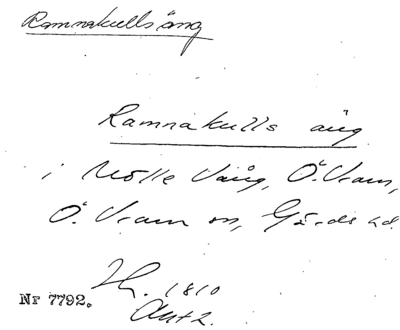 Ramnakullsäng
Ramnakulls äng
i Mölle Vång, Ö. Vram,
Ö. Vram sn, Gärds hd.
1810
Nr 7792.
Akt 2.